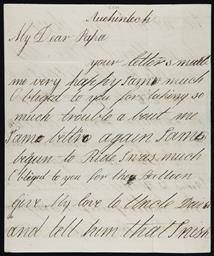 Auchinleck
My Dear Papa
your letters made
me very happy I am much
Obliged to you for taking so
much trouble about me
I am better again I am
begun to Ride I was much
Obliged to you for the pillion
give My love to Uncle
and tell him that I